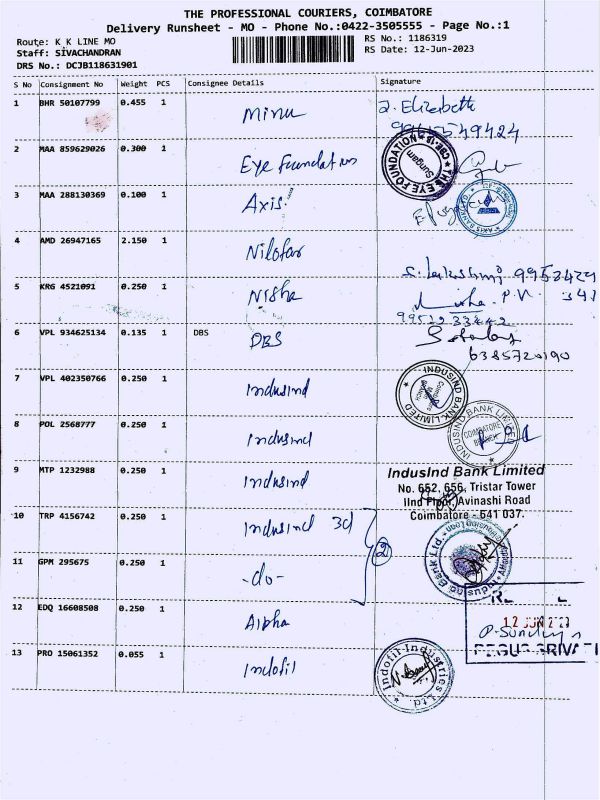 THE PROFESSIONAL COURIERS, COIMBATORE
Delivery Runsheet - MO - Phone No.:0422-3505555 - Page No.:1
Route: K K LINE MO
Staff: SIVACHANDRAN
DRS No.: DCJB118631901
RS No.: 1186319
RS Date: 12-Jun-2023
S No Consignment No Weight PCS Consignee Details Signature
1 BHR 50107799 0.455 1 Minu
2 MAA 859629026 0.300 1 Eye Foundation
THE EYE FOUNDATION
Sungam
CBE-18
3 MAA 288130369 0.100 1 Axis
AXIS BANK LTD
4 AMD 26947165 2.150 1 Nilofar
5 KRG 4521091 0.250 1 Nisha
6 VPL 934625134 0.135 1 DBS DBS
6385720190
7 VPL 402350766 0.250 1 Indusind
INDUSIND BANK LIMITED
8 POL 2568777 0.250 1 Indusind
INDUSIND BANK LIMITED
COIMBATORE BRANCH
9 MTP 1232988 0.250 1 Indusind
IndusInd Bank Limited
No. 652, 656, Tristar Tower
IInd Floor, Avinashi Road
Coimbatore - 641 037.
10 TRP 4156742 0.250 1 Indusind 3d
2
11 GPM 295675 0.250 1 -do-
12 EDQ 16608508 0.250 1 Alpha
12 JUN
13 PRO 15061352 0.055 1 Indofil
Indofil Industries Ltd